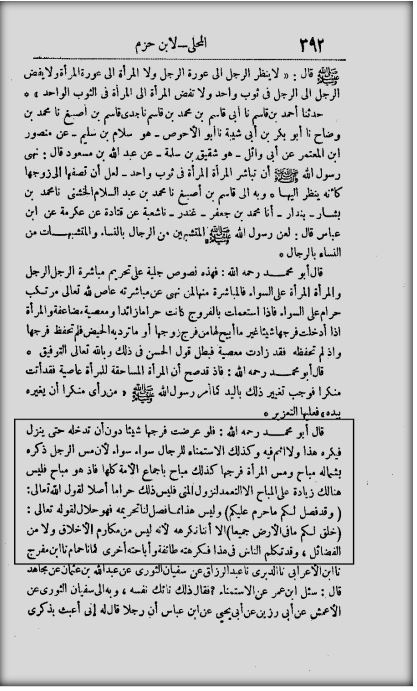 ٣٩٢ المحلى – لابن حزم
ﷺ قال : « لا ينظر الرجل الى عورة الرجل ولا المرأة الى عورة المرأة ولا يفض
الرجل الى الرجل فى ثوب واحد ولا تفض المرأة الى المرأة فى الثوب الواحد » •
حدثنا أحمد بن قاسم نا أبى قاسم بن محمد بن قاسم نا جدى قاسم بن أصبغ نا محمد بن
وضاح نا أبو بكر بن أبى شيبة نا أبو الأحوص ـ هو سلام بن سليم ـ عن منصور
ابن المعتمر عن أبى وائل ـ هو شقيق بن سلمة ـ عن عبد الله بن مسعود قال : نهى
رسول الله ﷺ أن تباشر المرأة المرأة فى ثوب واحد ـ لعل أن تصفها الى زوجها
كأنه ينظر اليها • وبه الى قاسم بن أصبغ نا محمد بن عبد السلام الخشنى نا محمد بن
بشار ـ بندار ـ أنا محمد بن جعفر ـ غندر ـ نا شعبة عن قتادة عن عكرمة عن ابن
عباس قال : لعن رسول الله ﷺ المتشبهين من الرجال بالنساء والمتشبهات من
النساء بالرجال •
قال أبو محمد رحمه الله : فهذه نصوص جلية على تحريم مباشرة الرجل الرجل
والمرأة المرأة على السواء فالمباشرة منها لمن نهى عن مباشرته عاص لله تعالى مرتكب
حرام على السواء فاذا استعملت بالفروج كانت حراما زائدا ومعصية مضاعفة والمرأة
اذا أدخلت فرجها شيئا غير ما أبيح لها من فرج زوجها أو ما ترد به الحيض فلم تحفظ فرجها
واذ لم تحفظه فقد زادت معصية فبطل قول الحسن فى ذلك وبالله تعالى التوفيق •
قال أبو محمد رحمه الله : فاذ قد صح أن المرأة المساحقة للمرأة عاصية فقد أتت
منكرا فوجب تغيير ذلك باليد كما أمر رسول الله ﷺ « من رأى منكرا أن يغيره
بيده » فعليها التعزير •
قال أبو محمد رحمه الله : فلو عرضت فرجها شيئا دون أن تدخله حتى ينزل
فيكره هذا ولا اثم فيه وكذلك الاستمناء للرجال سواء سواء لأن مس الرجل ذكره
بشماله مباح ومس المرأة فرجها كذلك مباح باجماع الأمة كلها فاذ هو مباح فليس
هنالك زيادة على المباح الا التعمد لنزول المنى فليس ذلك حراما أصلا لقول الله تعالى :
( وقد فصل لكم ما حرم عليكم ) وليس هذا مما فصل لنا تحريمه فهو حلال لقوله تعالى :
( خلق لكم ما فى الأرض جميعا ) الا أننا نكرهه لأنه ليس من مكارم الأخلاق ولا من
الفضائل ، وقد تكلم الناس فى هذا فكرهته طائفة وأباحته أخرى كما نا حمام نا ابن مفرج
نا ابن الأعرابى نا الدبرى نا عبد الرزاق عن سفيان الثورى عن عبد الله بن عثمان عن مجاهد
قال : سئل ابن عمر عن الاستمناء ؟ فقال ذلك نائك نفسه ، وبه الى سفيان الثورى عن
الأعمش عن أبى رزين عن أبى يحيى عن ابن عباس أن رجلا قال له إنى أعبث بذكرى